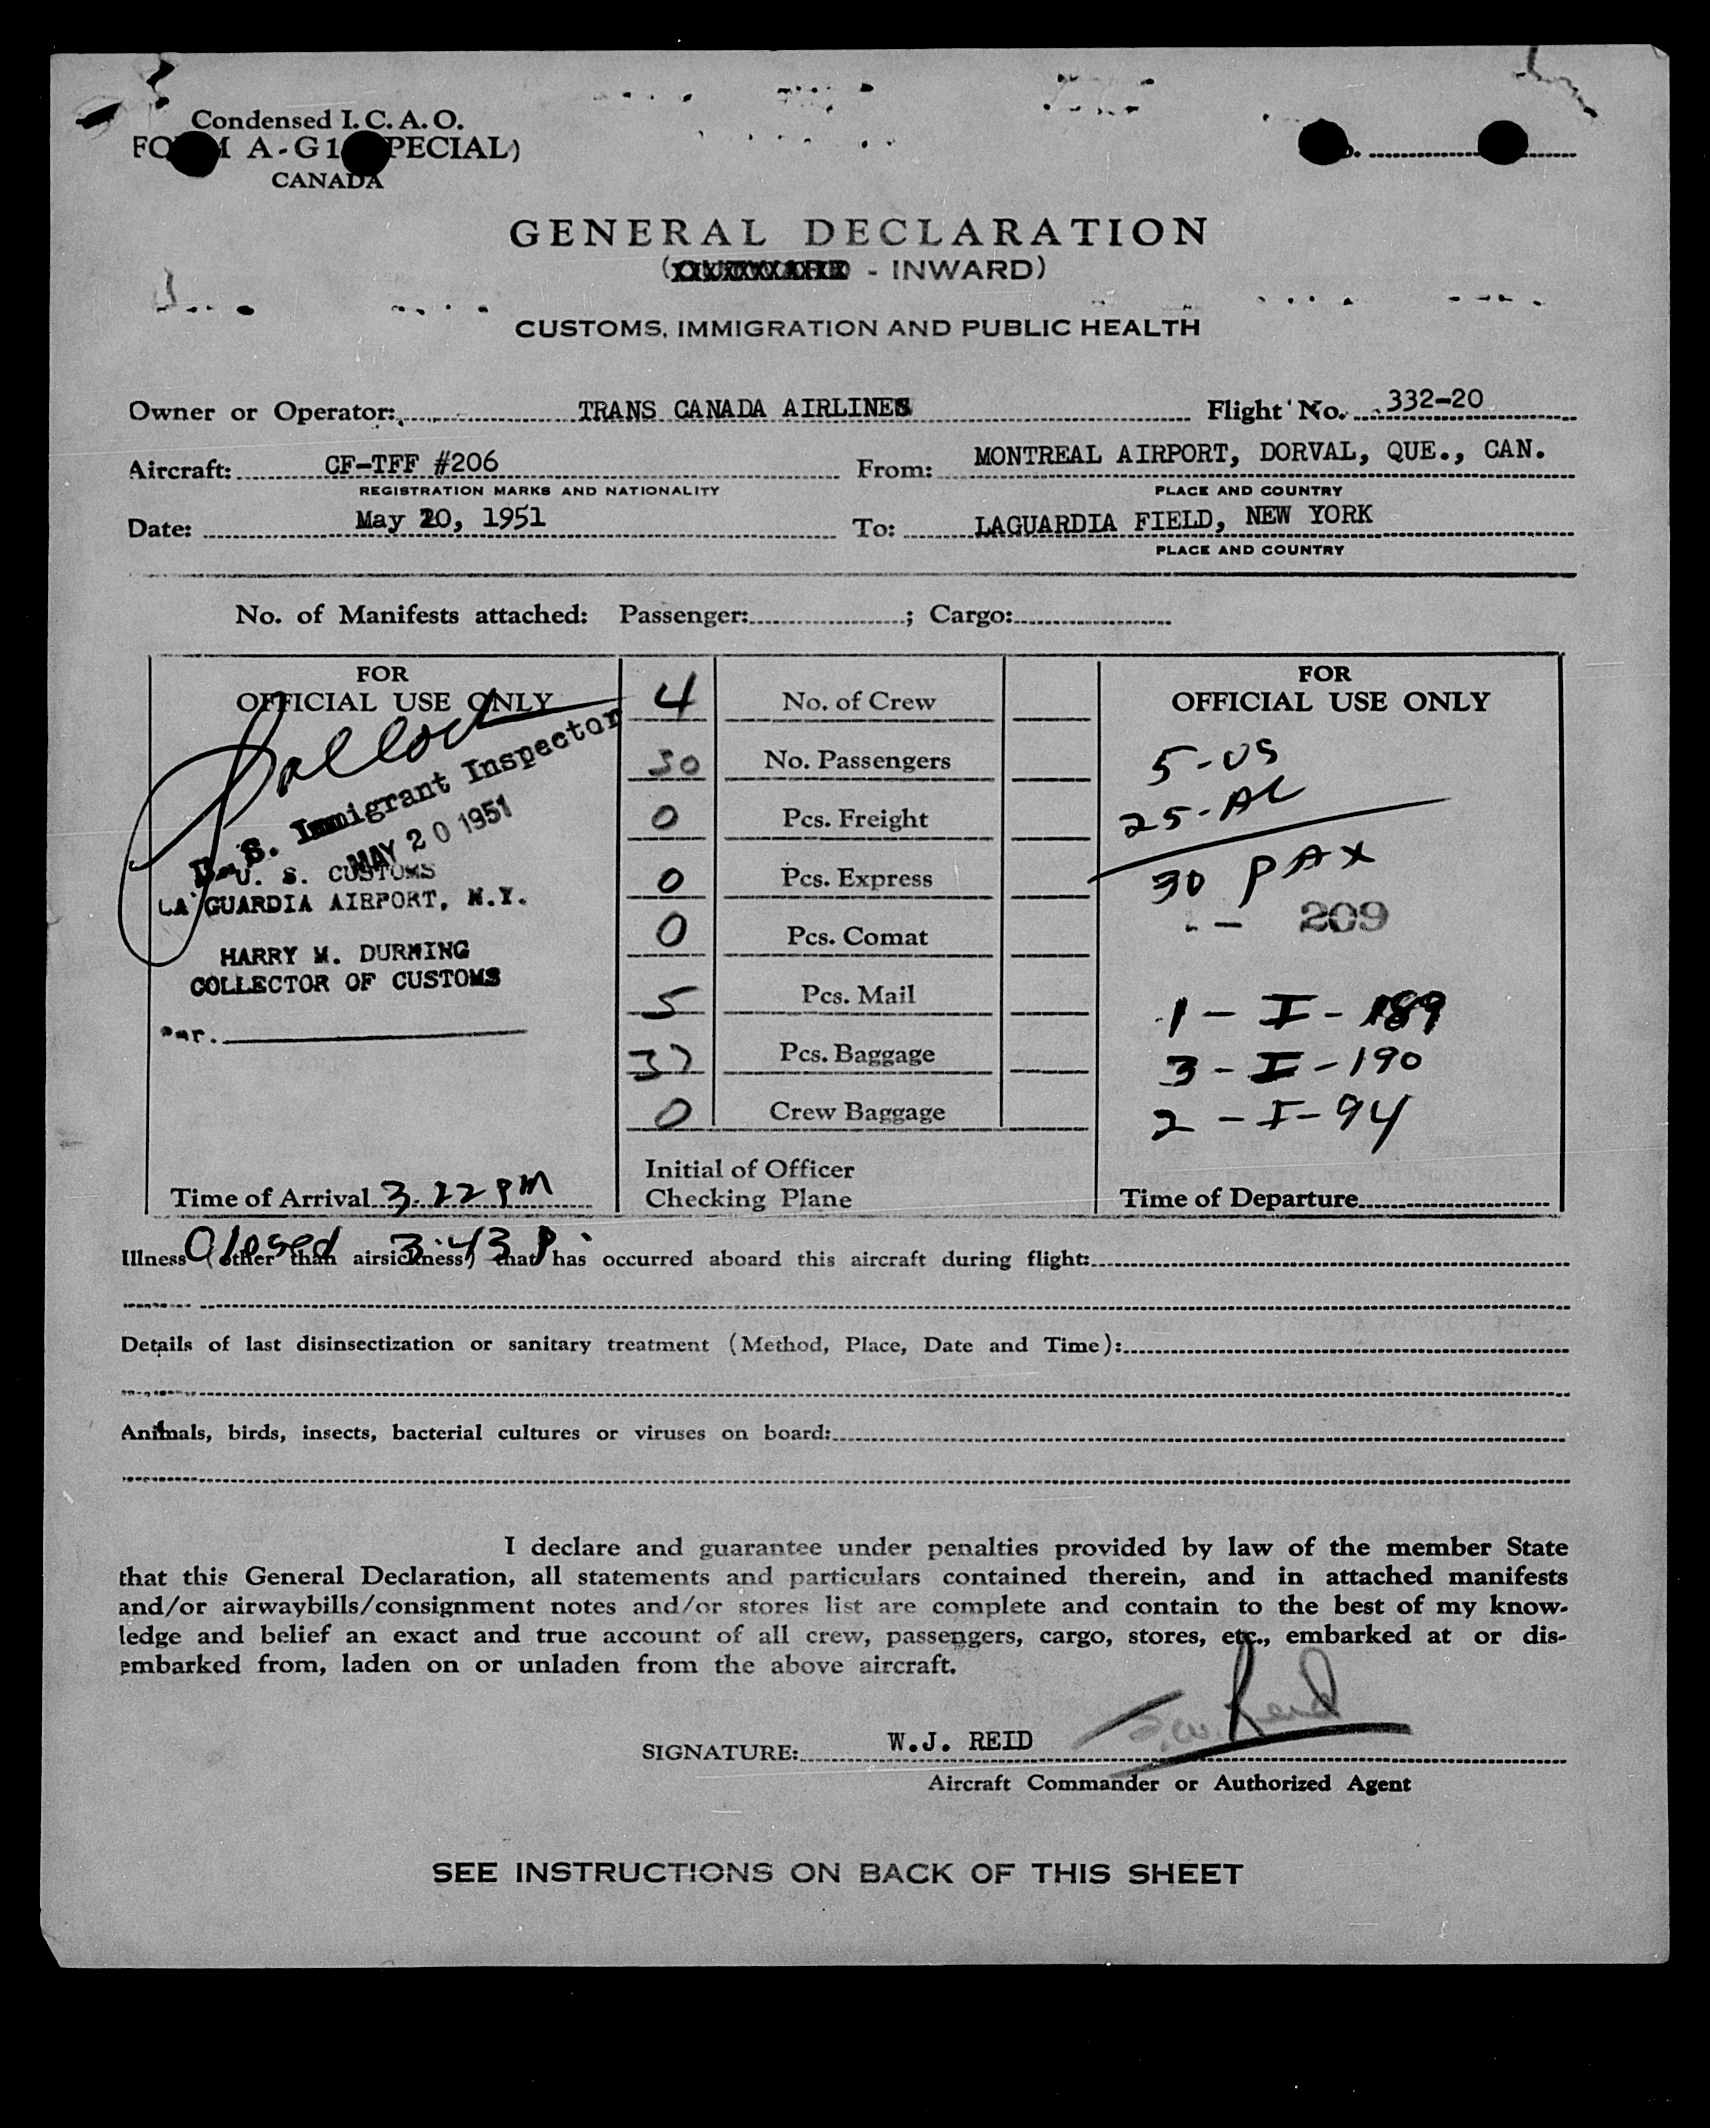 Condensed I. C. A. O.
FORM A-G1 (SPECIAL)
CANADA
GENERAL DECLARATION
( - INWARD)
CUSTOMS, IMMIGRATION AND PUBLIC HEALTH
Owner or Operator: TRANS CANADA AIRLINES Flight No. 332-20
Aircraft: CF-TFF #206 From: MONTREAL AIRPORT, DORVAL, QUE., CAN.
REGISTRATION MARKS AND NATIONALITY PLACE AND COUNTRY
Date: May 20, 1951 To: LAGUARDIA FIELD, NEW YORK
PLACE AND COUNTRY
No. of Manifests attached: Passenger: ; Cargo:
FOR
OFFICIAL USE ONLY
U.S. Immigrant Inspector
MAY 20 1951
U. S. CUSTOMS
LA GUARDIA AIRPORT, N.Y.
HARRY M. DURNING
COLLECTOR OF CUSTOMS
Per.
Time of Arrival 3-22 PM
4 No. of Crew
30 No. Passengers
0 Pcs. Freight
0 Pcs. Express
0 Pcs. Comat
5 Pcs. Mail
37 Pcs. Baggage
0 Crew Baggage
Initial of Officer
Checking Plane
FOR
OFFICIAL USE ONLY
5-US
25-AL
30 PAX
209
1 - I - 189
3 - I - 190
2 - I - 94
Time of Departure
Closed 3:43 P.
Illness (other than airsickness) that has occurred aboard this aircraft during flight:
Details of last disinsectization or sanitary treatment (Method, Place, Date and Time):
Animals, birds, insects, bacterial cultures or viruses on board:
I declare and guarantee under penalties provided by law of the member State
that this General Declaration, all statements and particulars contained therein, and in attached manifests
and/or airwaybills/consignment notes and/or stores list are complete and contain to the best of my know-
ledge and belief an exact and true account of all crew, passengers, cargo, stores, etc., embarked at or dis-
embarked from, laden on or unladen from the above aircraft.
SIGNATURE: W.J. REID
Aircraft Commander or Authorized Agent
SEE INSTRUCTIONS ON BACK OF THIS SHEET